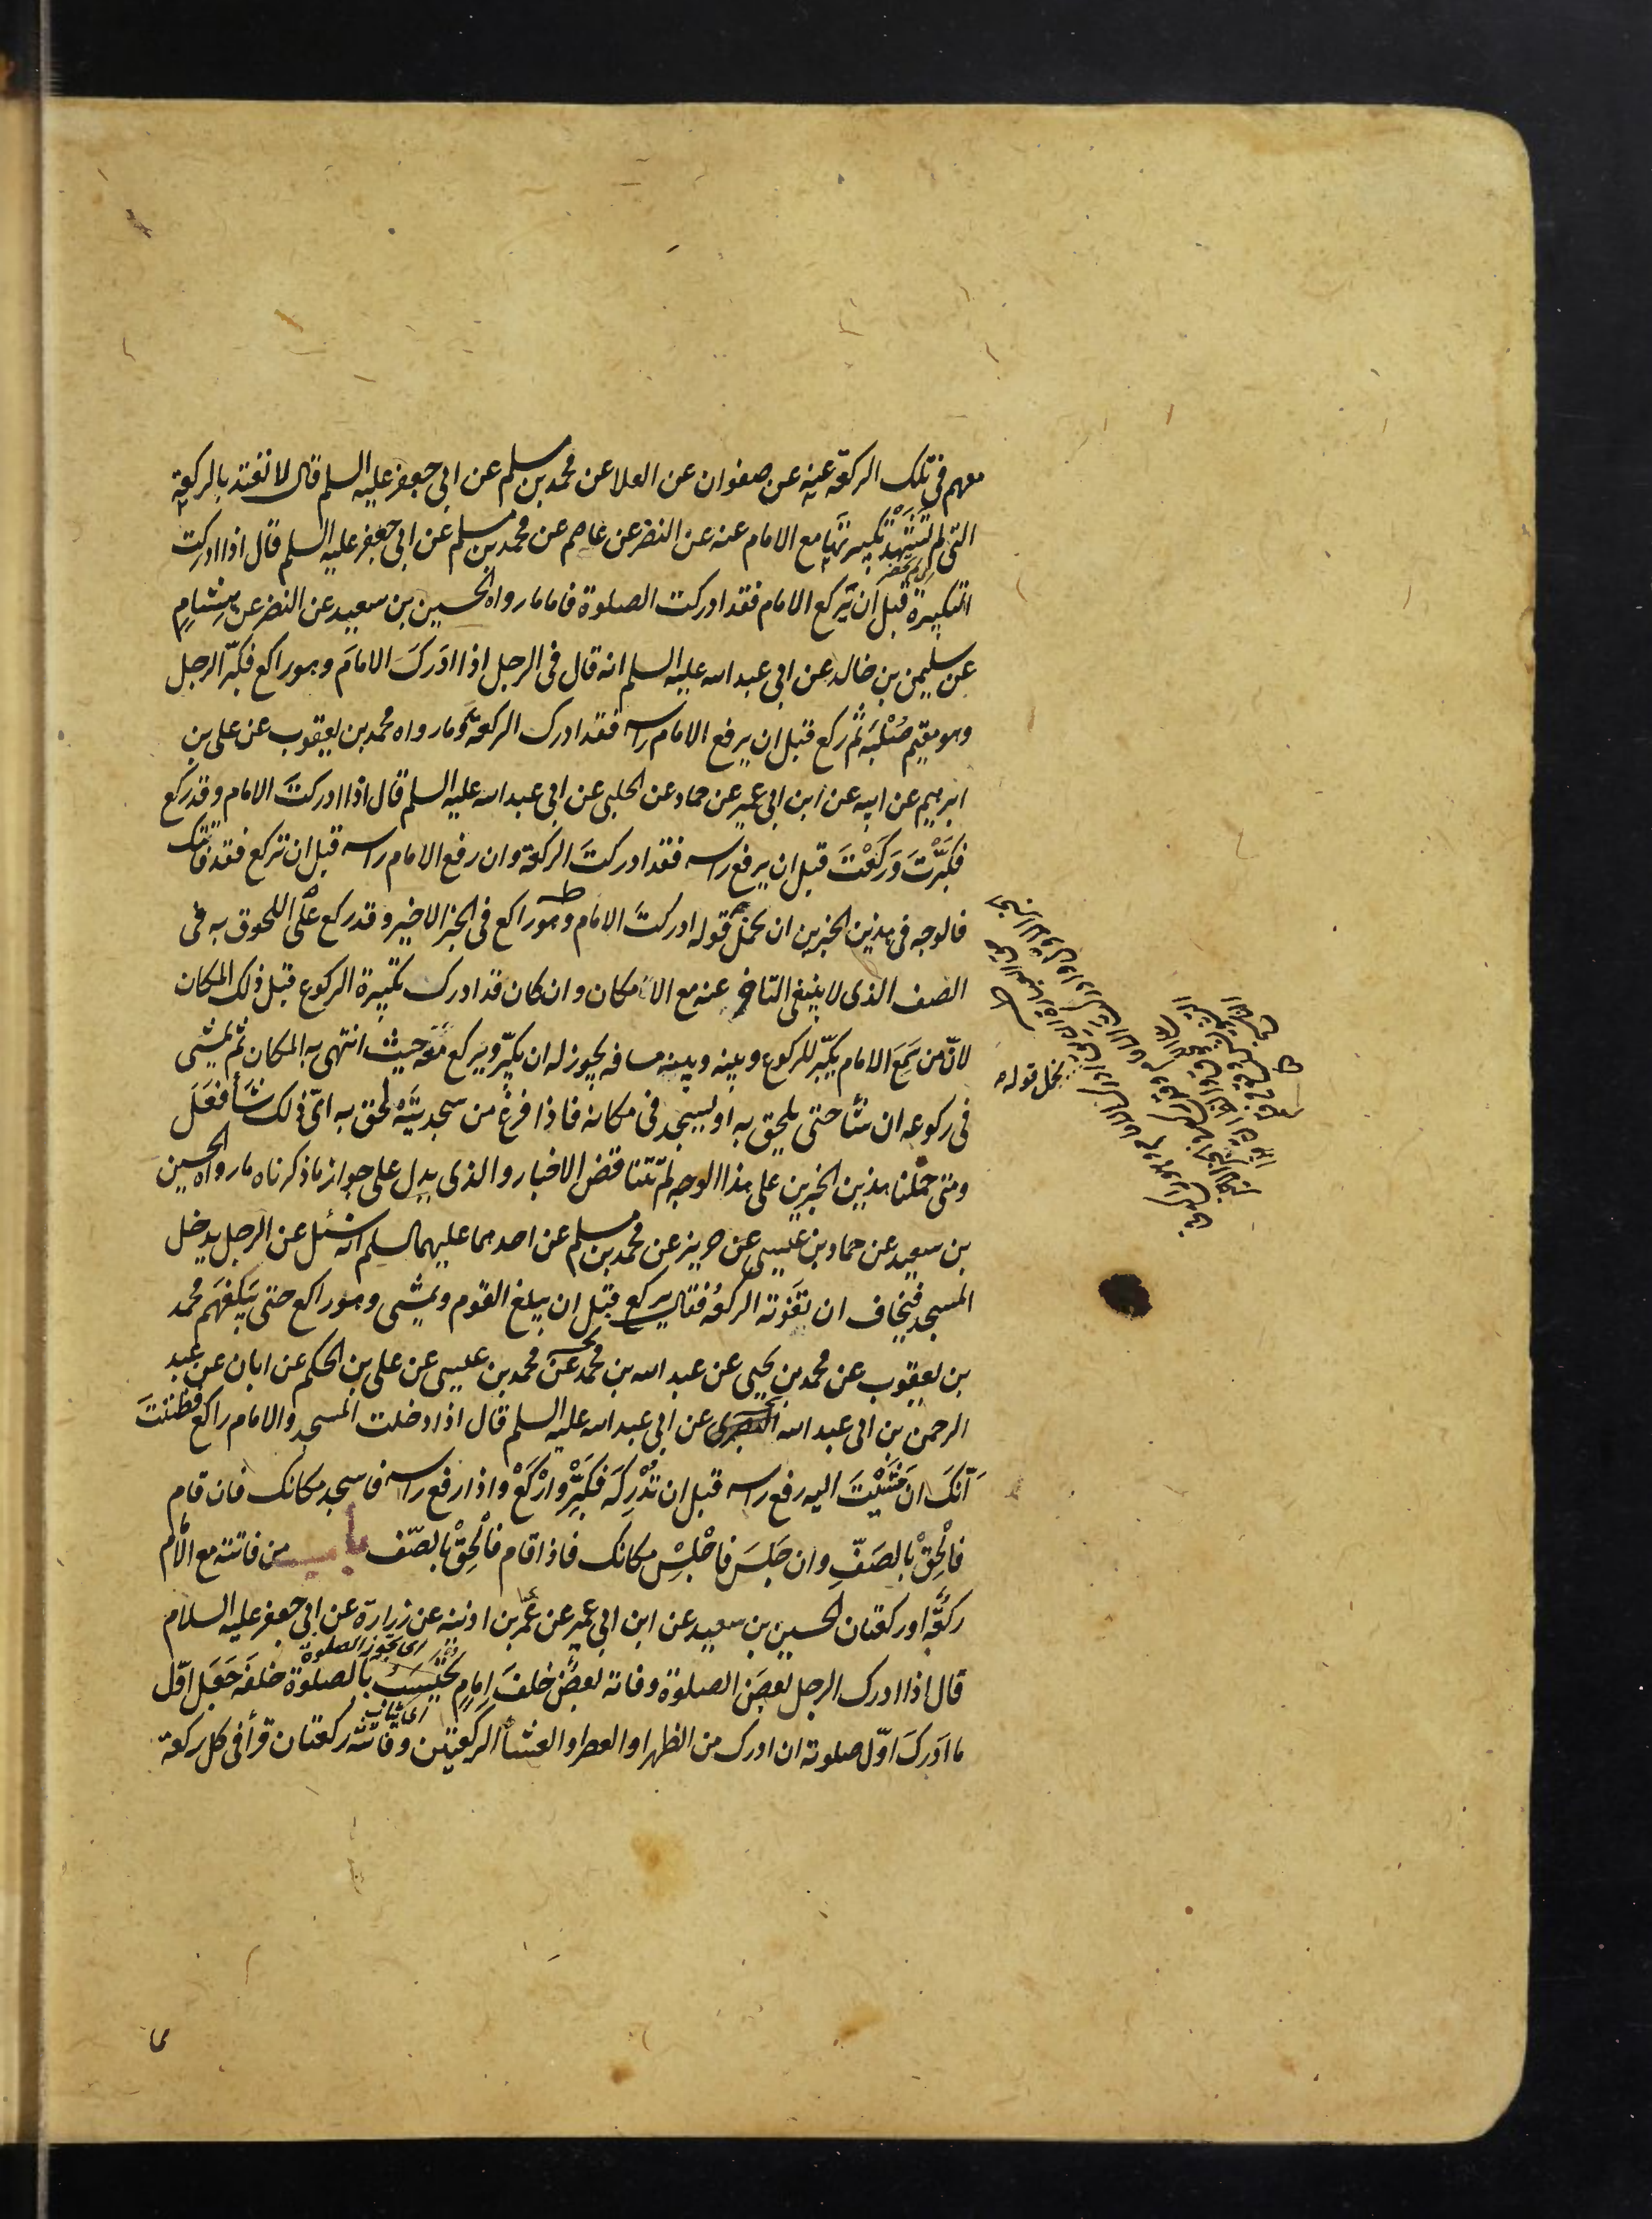 معهم في تلك الركعة عنه عن صفوان عن العلا عن محمد بن مسلم عن ابى جعفر عليه السلم قال لا تعتد بالركعة
التى لم تشهد تكبيرتها مع الامام عنه عن النضر عن عاصم عن محمد بن مسلم عن ابى جعفر عليه السلم قال اذا ادركت
التكبيرة قبل ان يركع الامام فقد ادركت الصلوة فاما ما رواه الحسين بن سعيد عن النضر عن هشام
عن سليمن بن خالد عن ابى عبد الله عليه السلم انه قال فى الرجل اذا ادرك الامام وهو راكع فكبّر الرجل
وهو مقيم صُلْبَه ثم ركع قبل ان يرفع الامام راسه فقد ادرك الركعة وما رواه محمد بن يعقوب عن على بن
ابرهيم عن ابيه عن ابن ابى عمير عن حماد عن الحلبى عن ابى عبد الله عليه السلم قال اذا ادركتَ الامام وقد ركع
فكَبَّرْتَ وَرَكَعْتَ قبل ان يرفع راسه فقد ادركتَ الركعة وان رفع الامام راسه قبل ان تركع فقد فاتتك
فالوجه فى هذين الخبرين ان نحمل قوله ادركتَ الامام وهو راكع فى الخبر الاخير وقد ركع على اللحوق به فى
الصف الذى لا ينبغى التاخر عنه مع الامكان وان كان قد ادرك تكبيرة الركوع قبل ذلك المكان
لانّ من سَمِعَ الامام يكبّر للركوع وبينه وبينه مسافه يجوز له ان يكبّر ويركع معه حيث انتهى به المكان ثم يمشى
فى ركوعه ان شأ حتى يلحق به او يسجد فى مكانه فاذا فرغ من سجدتيه لحق به اىّ ذلك شأ فَعَلَ
ومتى حملنا هذين الخبرين على هذا الوجه لم تتناقض الاخبار والذى يدل على جواز ما ذكرناه ما رواه الحسين
بن سعيد عن حماد بن عيسى عن حريز عن محمد بن مسلم عن احدهما عليهما السلم انه سُئل عن الرجل يدخل
المسجد فيخاف ان تفوته الركعة فقال يركع قبل ان يبلغ القوم ويمشى وهو راكع حتى يبلغهم محمد
بن يعقوب عن محمد بن يحيى عن عبد الله بن محمد عن محمد بن عيسى عن على بن الحكم عن ابان عن عبد
الرحمن بن ابى عبد الله البصرى عن ابى عبد الله عليه السلم قال اذا دخلت المسجد والامام راكع فظننتَ
اَنّكَ ان مَشَيْتَ اليه رفع راسه قبل ان تُدْرِكَه فكَبِّرْ وارْكَعْ واذا رفع راسه فاسجد مكانك فان قام
فالْحِقْ بالصَفّ وان جَلَسَ فاجْلِسْ مكانك فاذا قام فالْحِقْ بالصّف باب من فاتته مع الامام
ركعَةٌ او ركعتان الحسين بن سعيد عن ابن ابى عمير عن عمر بن اذينه عن زرارة عن ابى جعفر عليه السلام
اى تجوز الصلوة
قال اذا ادرك الرجل بعضَ الصلوة وفاته بعضٌ خلفَ امامٍ يَحْتَسِبُ بالصلوة خلفَه جَعَلَ اوّل
ما ادركَ اوّل صلوته ان ادرك من الظهر او العصر او العشأ الركعتين وفاتته ركعتان قرأ فى كل ركعة
نحمل قوله
مما